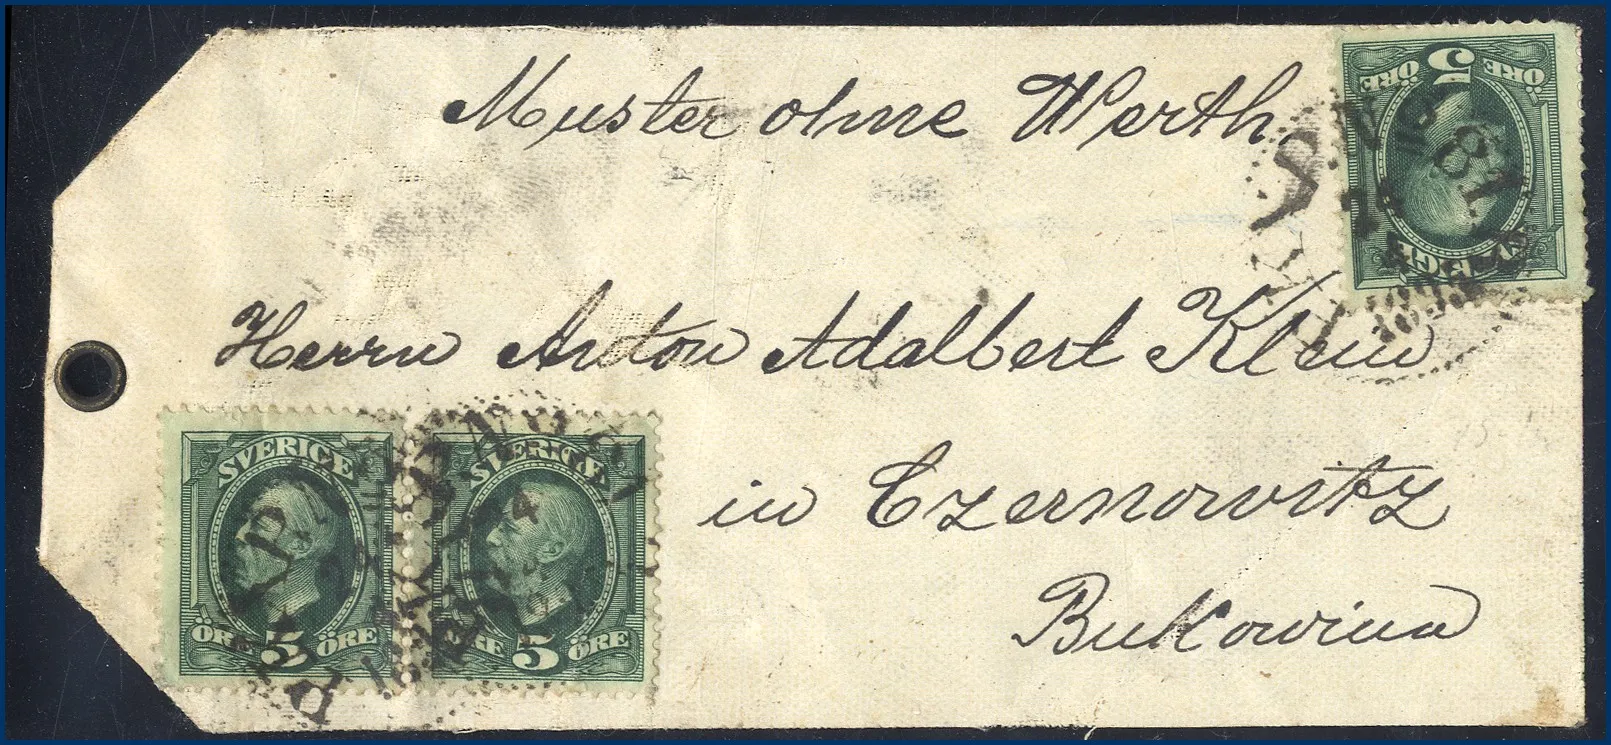 Muster ohne Werth
5
ÖRE ÖRE
SVERIGE
Herrn Anton Adalbert Klein
SVERIGE
SVERIGE
in Czernowitz
Bukowina
ÖRE 5 ÖRE
ÖRE 5 ÖRE